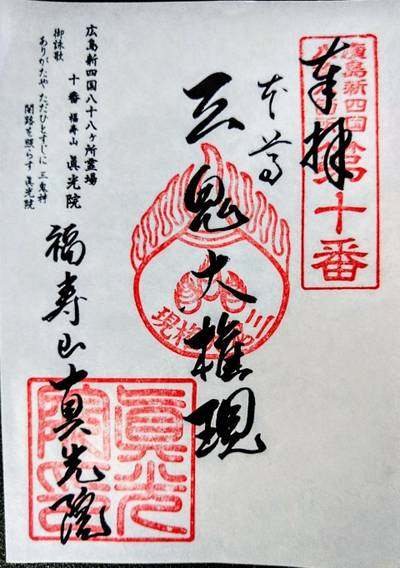 奉拝
第十番
本尊
三鬼大権現
広島新四国八十八ヶ所霊場
十番 福寿山 眞光院
御詠歌
ありがたや ただひとすじに 三鬼神
闇路を照らす 眞光院
福寿山 真光院